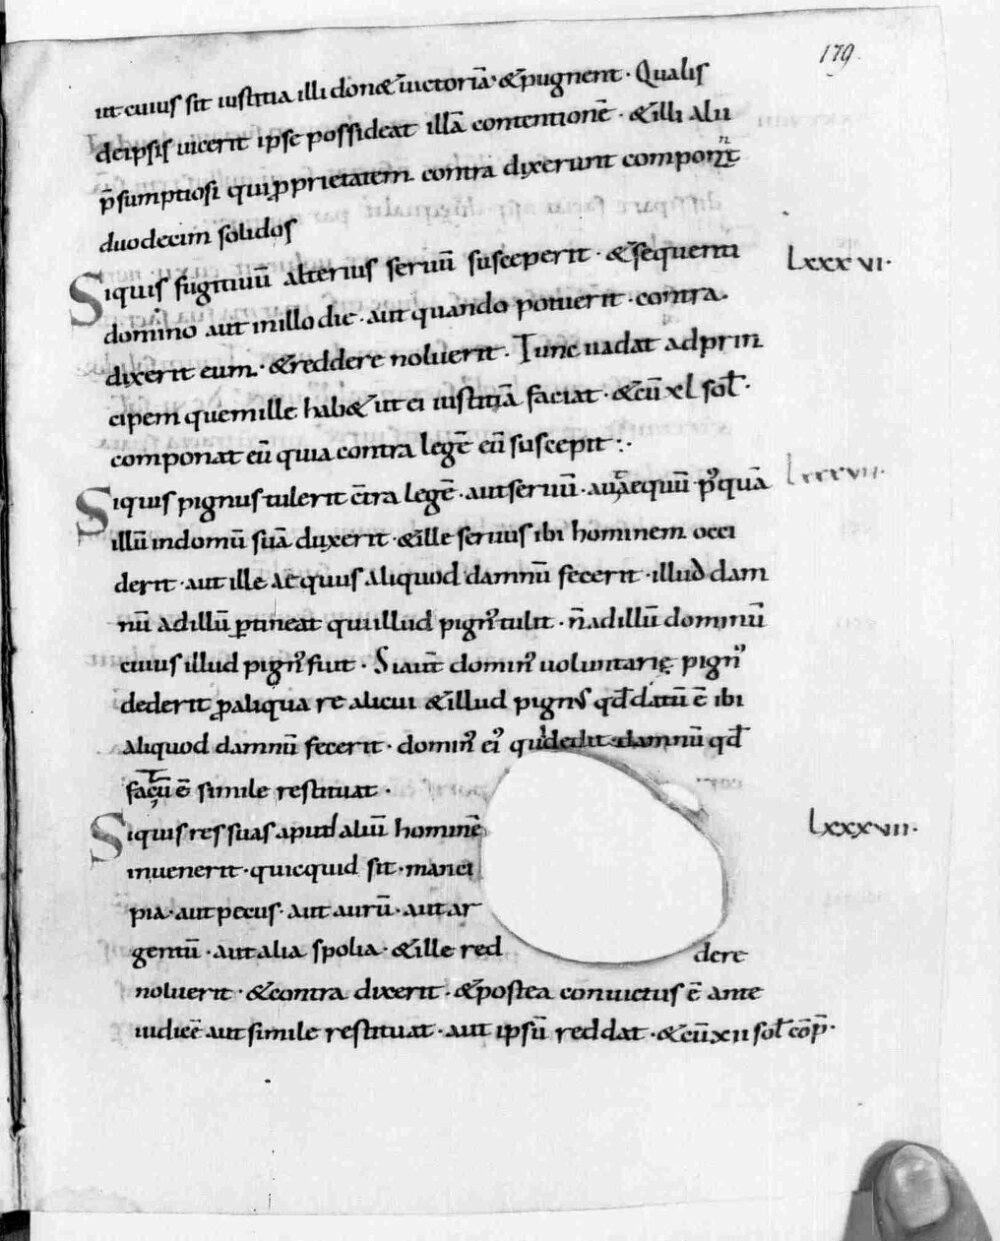 179
ut cuius sit iustitia illi don& uictoriā · & pugnent · Qualis
deipsis uicerit ipse possideat illā contentionē · & illi alii
p̄sumptiosi qui ꝓprietatem contra dixerunt componant
duodecim solidos
Siquis fugitiuū alterius seruū susceperit · & sequenti
Lxxxvi·
domino aut in illo die · aut quando potuerit · contra·
dixerit eum · & reddere noluerit · Tunc uadat ad prin
cipem quem ille hab& ut ei iustitiā faciat · & cū xl soł·
componat eū quia contra legē eū suscepit :·
Siquis pignus tulerit c̄tra legē · aut seruū · aut equū pꝰquā
Lxxxvii·
illū in domū suā duxerit · & ille seruus ibi hominem occi
derit · aut ille aequus aliquod damnū fecerit · illud dam
nū ad illū ꝑtineat qui illud pignꝰ tulit · n̄ ad illū dominū
cuius illud pignꝰ fuit · Si aut̄ dominꝰ uoluntarię pignꝰ
dederit ꝓ aliqua re alicui & illud pignꝰ qđ datū ē ibi
aliquod damnū fecerit · dominꝰ eiꝰ qui dedit damnū qđ
factū ē simile restituat ·
Siquis res suas aput aliū hominē
Lxxxvii·
inuenerit · quicquid sit · manci
pia · aut pecus · aut aurū · aut ar
gentū · aut alia spolia · & ille red dere
noluerit · & contra dixerit · & postea conuictus ē ante
iudicē aut simile restituat · aut ipsū reddat · & cū xii soł cōp̄·